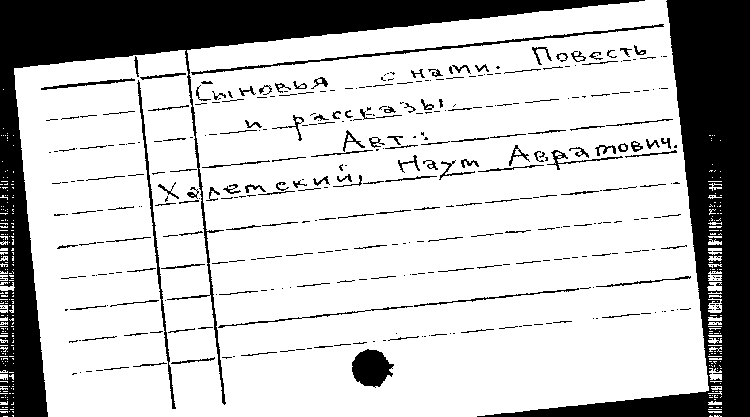 Сыновья с нами. Повесть
и рассказы.
Авт.:
Халетский, Наум Аврамович.